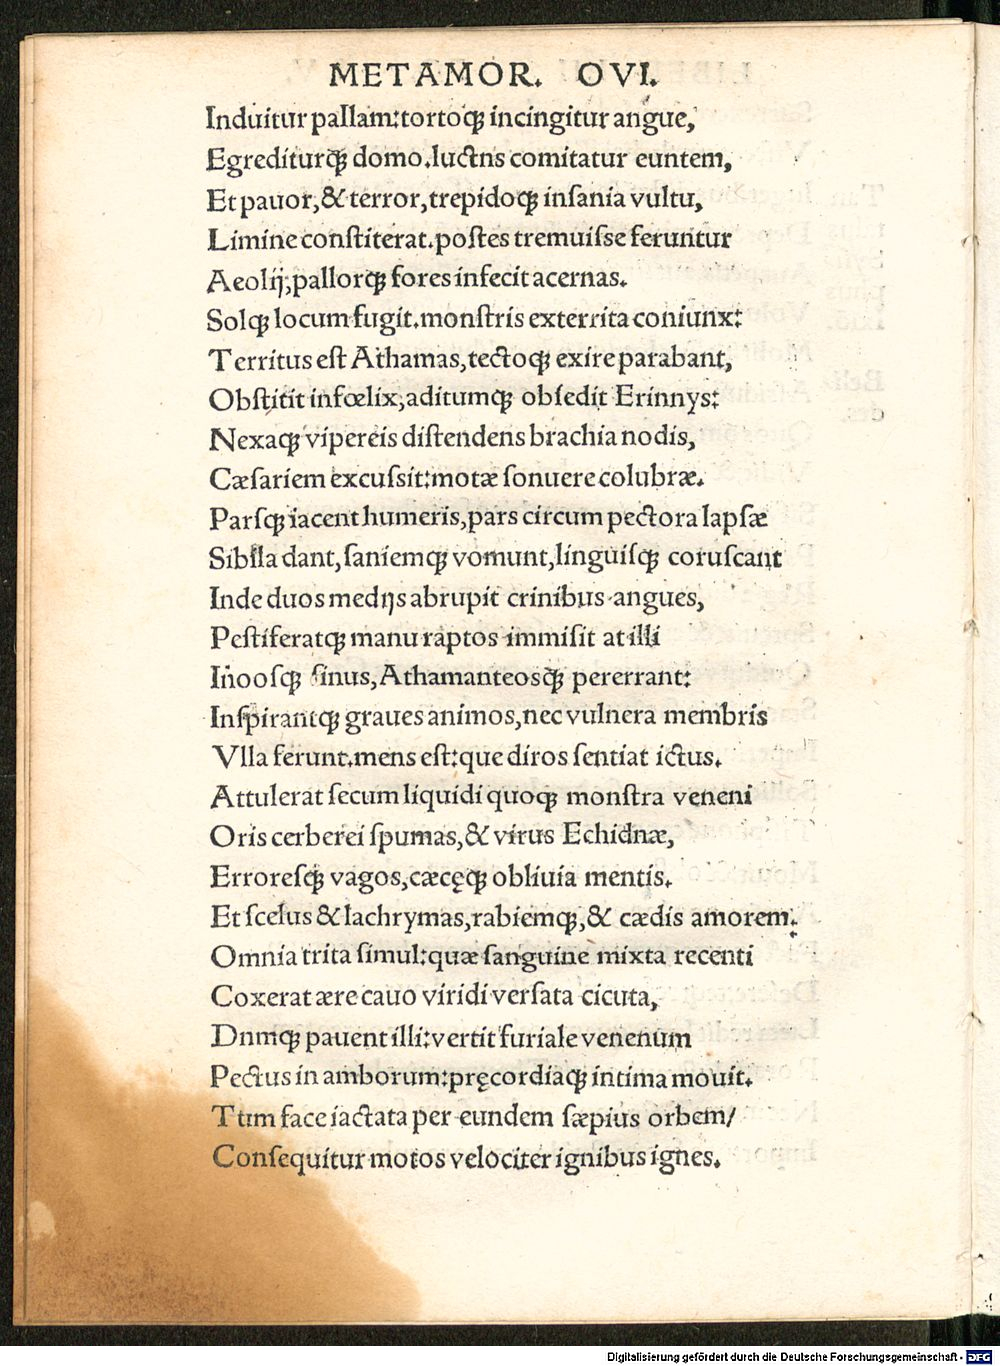 METAMOR. OVI.
Induitur pallam:tortoqꝫ incingitur angue,
Egrediturqꝫ domo.luctns comitatur euntem,
Et pauor,& terror,trepidoqꝫ inſania vultu,
Limine conſtiterat.poſtes tremuiſſe feruntur
Aeolij,pallorqꝫ fores infecit acernas.
Solqꝫ locum fugit.monſtris exterrita coniunx:
Territus eſt Athamas,tectoqꝫ exire parabant,
Obſtitit infœlix,aditumqꝫ obſedit Erinnys:
Nexaqꝫ vipereis diſtendens brachia nodis,
Cæſariem excuſſit:motæ ſonuere colubræ.
Parſqꝫ iacent humeris,pars circum pectora lapſæ
Sibila dant,ſaniemqꝫ vomunt,linguiſqꝫ coruſcant
Inde duos medijs abrupit crinibus angues,
Peſtiferatqꝫ manu raptos immiſit at illi
Inooſqꝫ ſinus,Athamanteosqꝫ pererrant:
Inſpirantqꝫ graues animos,nec vulnera membris
Vlla ferunt.mens eſt:que diros ſentiat ictus.
Attulerat ſecum liquidi quoqꝫ monſtra veneni
Oris cerberei ſpumas,& virus Echidnæ,
Erroreſqꝫ vagos,cæcęqꝫ obliuia mentis.
Et ſcelus & lachrymas,rabiemqꝫ,& cædis amorem:
Omnia trita ſimul:quæ ſanguine mixta recenti
Coxerat ære cauo viridi verſata cicuta,
Dnmqꝫ pauent illi:vertit furiale venenum
Pectus in amborum:pręcordiaqꝫ intima mouit.
Tum face iactata per eundem ſæpius orbem/
Conſequitur motos velociter ignibus ignes.
Digitalisierung gefördert durch die Deutsche Forschungsgemeinschaft - DFG